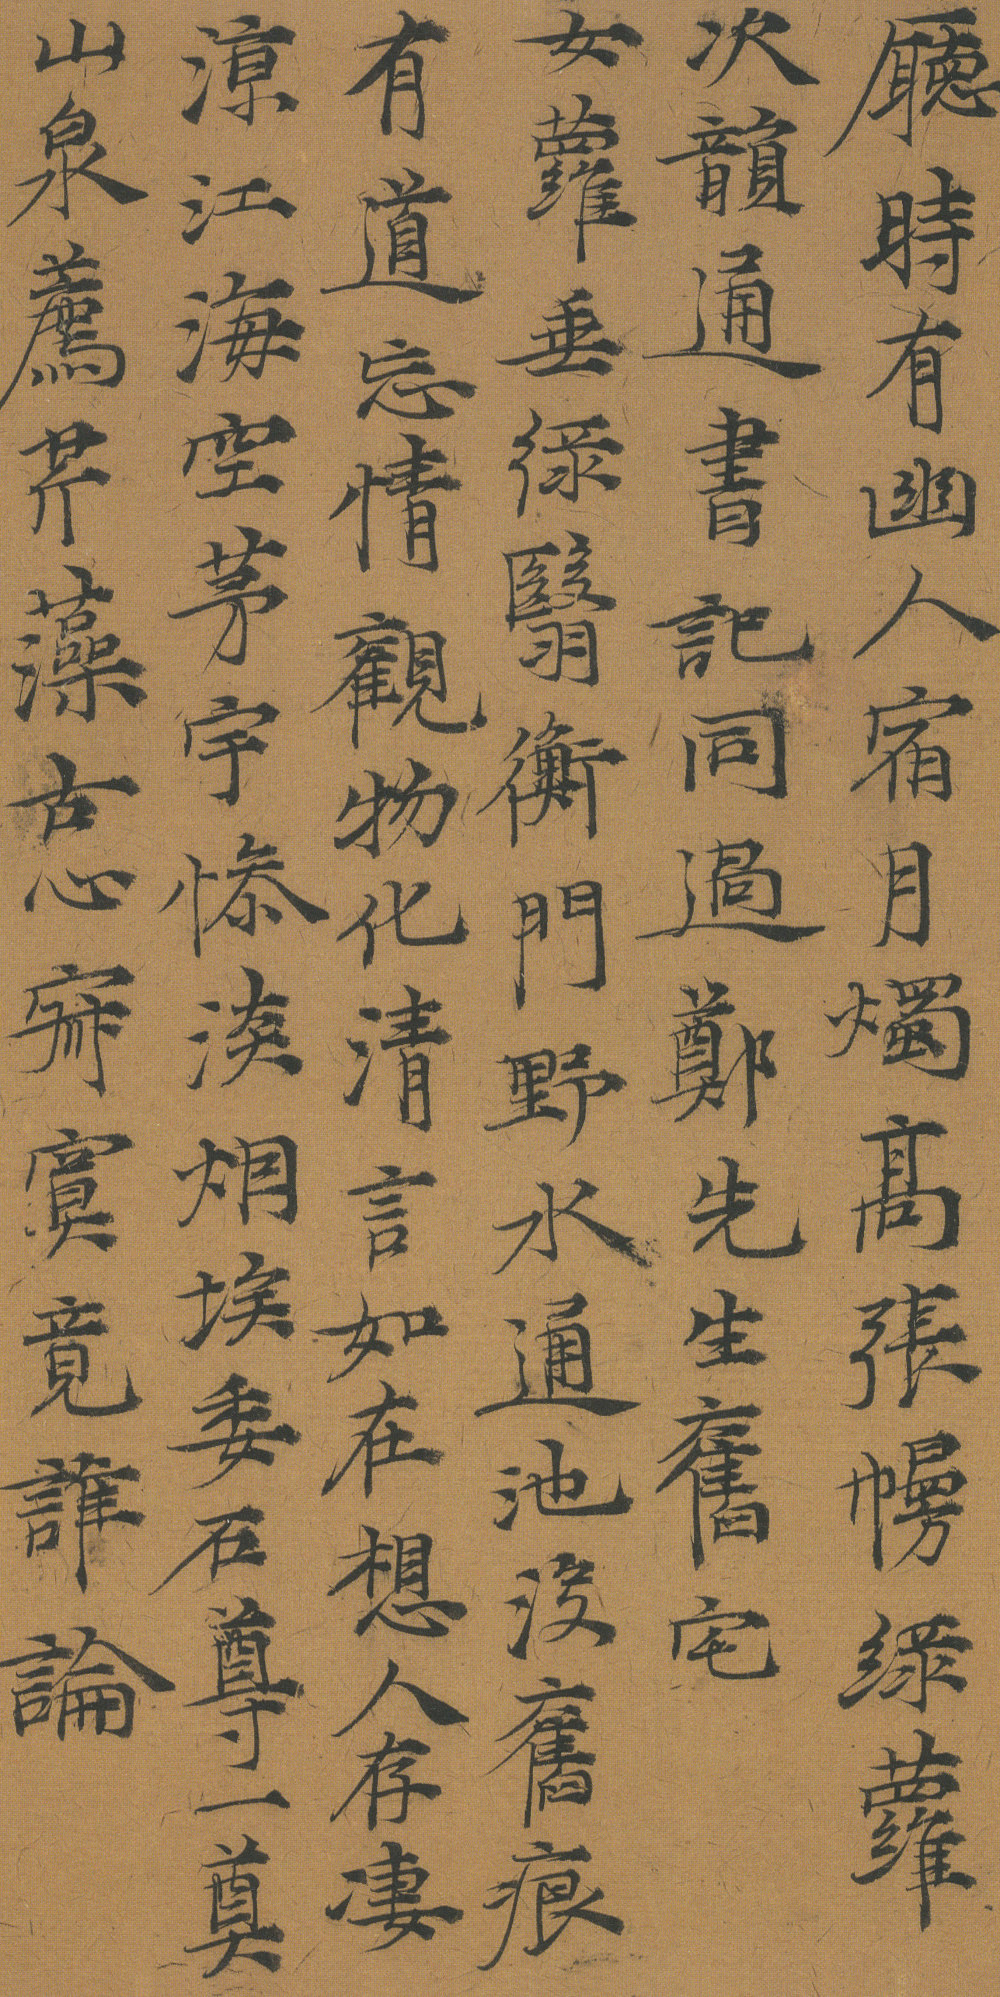 廳時有幽人宿月燭高張幔綠蘿
次韻通書記同過鄭先生舊宅
女蘿垂綠翳衡門野水通池没舊痕
有道忘情觀物化清言如在想人存凄
涼江海空茅宇慘淡烟埃委石尊一奠
山泉薦芹藻古心寂寞竟誰論